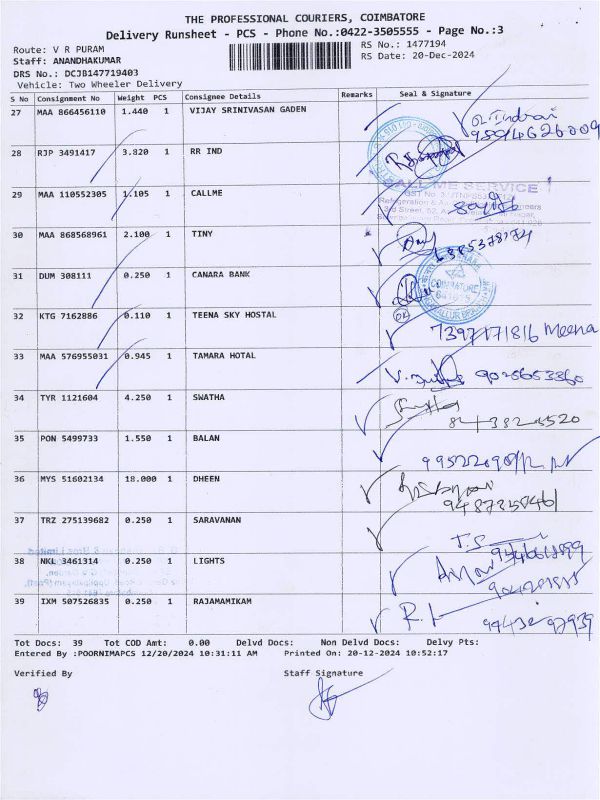 THE PROFESSIONAL COURIERS, COIMBATORE
Delivery Runsheet - PCS - Phone No.:0422-3505555 - Page No.:3
Route: V R PURAM
RS No.: 1477194
Staff: ANANDHAKUMAR
RS Date: 20-Dec-2024
DRS No.: DCJB147719403
Vehicle: Two Wheeler Delivery
S No Consignment No Weight PCS Consignee Details Remarks Seal & Signature
27 MAA 866456110 1.440 1 VIJAY SRINIVASAN GADEN
28 RJP 3491417 3.820 1 RR IND
29 MAA 110552305 1.105 1 CALLME
CALL ME SERVICE
30 MAA 868568961 2.100 1 TINY
31 DUM 308111 0.250 1 CANARA BANK
COIMBATORE
32 KTG 7162886 0.110 1 TEENA SKY HOSTAL
7397171816 Meena
33 MAA 576955031 0.945 1 TAMARA HOTAL
9025653360
34 TYR 1121604 4.250 1 SWATHA
35 PON 5499733 1.550 1 BALAN
36 MYS 51602134 18.000 1 DHEEN
37 TRZ 275139682 0.250 1 SARAVANAN
38 NKL 3461314 0.250 1 LIGHTS
39 IXM 507526835 0.250 1 RAJAMAMIKAM
Tot Docs: 39 Tot COD Amt: 0.00 Delvd Docs: Non Delvd Docs: Delvy Pts:
Entered By :POORNIMAPCS 12/20/2024 10:31:11 AM Printed On: 20-12-2024 10:52:17
Verified By Staff Signature